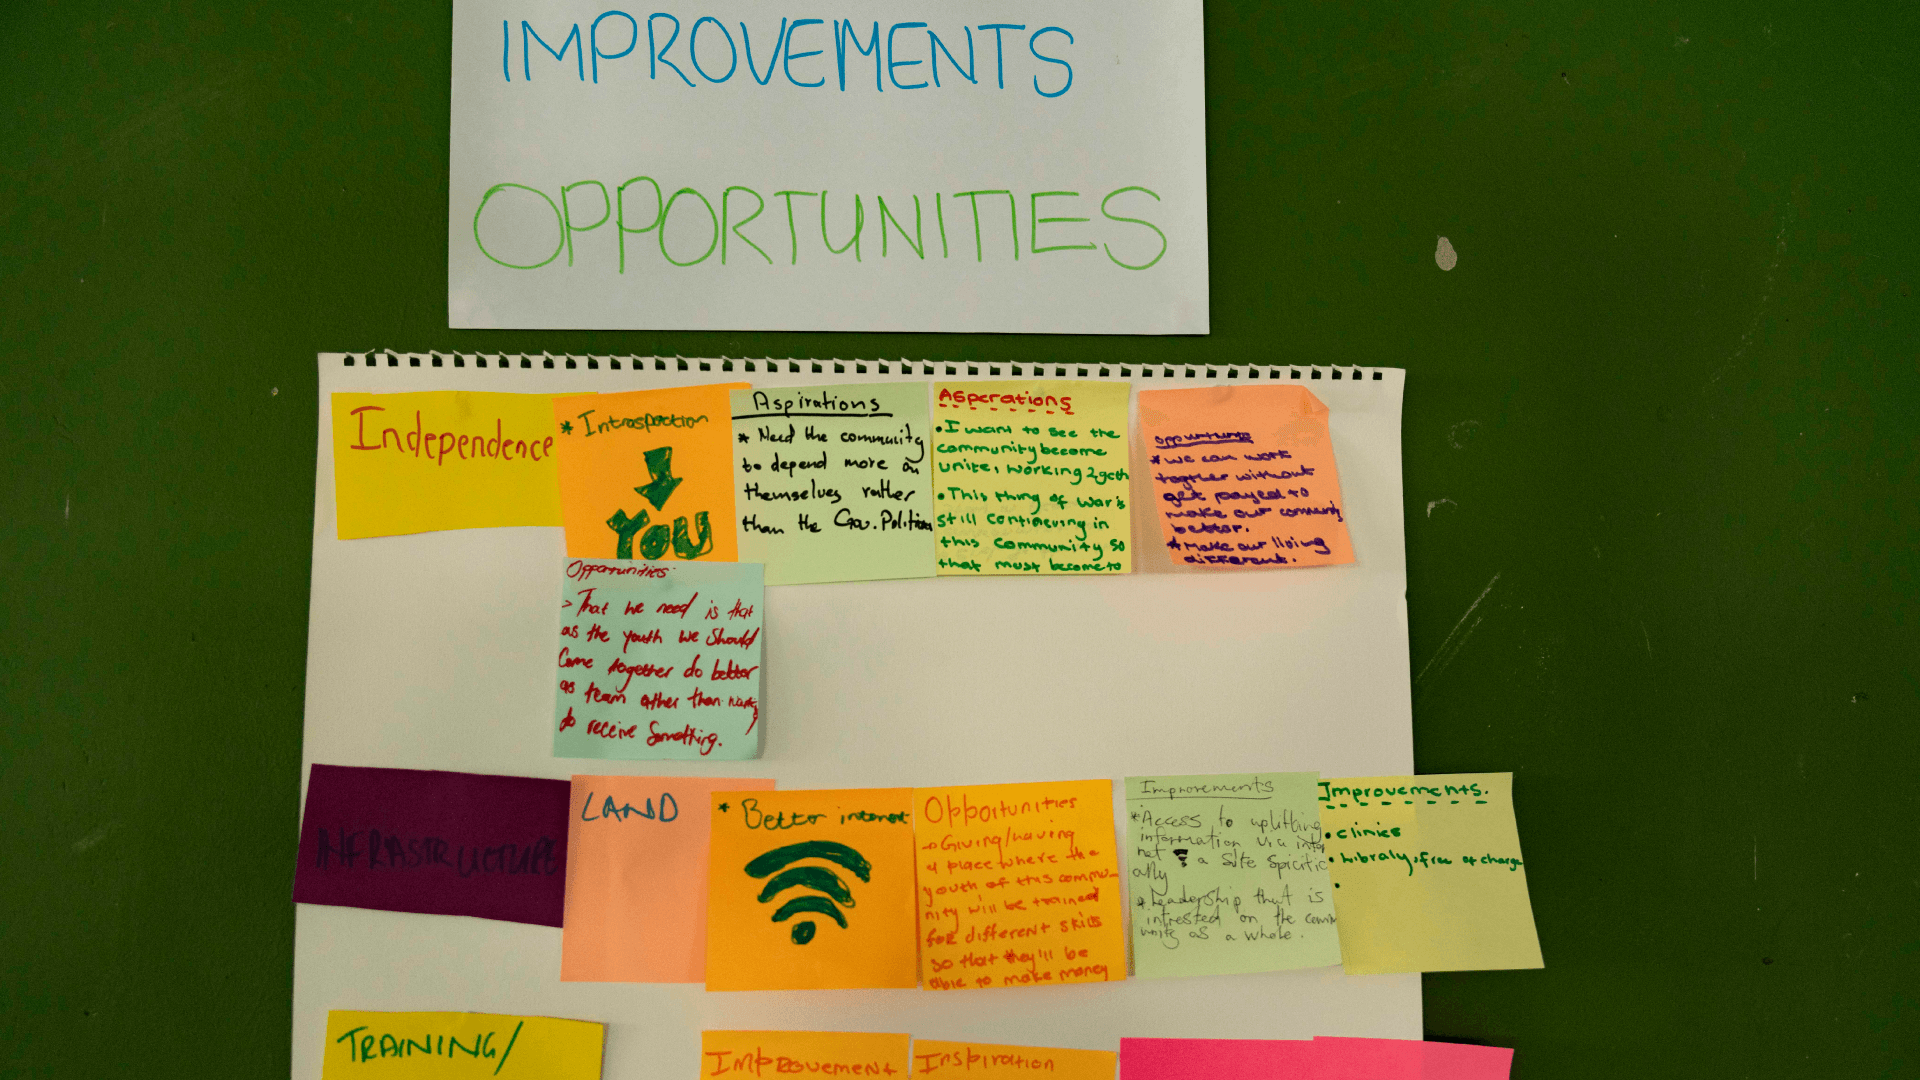 IMPROVEMENTS
OPPORTUNITIES
Independence
* Introspection
YOU
Aspirations
* Need the community
to depend more on
themselves rather
than the Gov. Politicians
Asperations
• I want to see the
community become
unite, working 2geth
• This thing of war is
still continuing in
this community so
that must become to
* we can work
together without
get payed to
make our community
better.
* Make our living
different.
Opportunities
> That we need is that
as the youth we should
Come together do better
as team rather than
to receive Something.
INFRASTRUCTURE
LAND
* Better internet
Opportunities
→ Giving/having
a place where the
youth of this commu-
nity will be trained
for different skills
so that they'll be
able to make money
Improvements
* Access to uplifting
information via inter
net a site
ally
* Leadership that is
intrested on the comm
unity as a whole.
Improvements.
• clinics
• Libraly, free of charge
•
TRAINING/
IMPROVEMENT
Inspiration